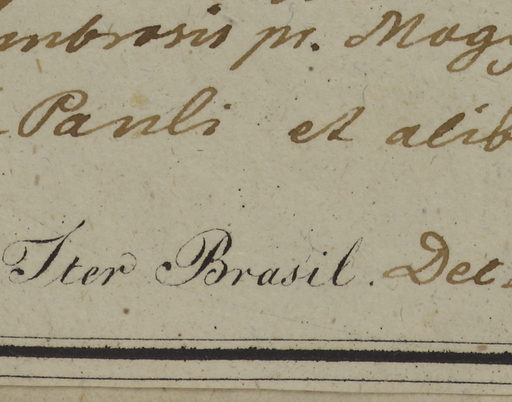 umbrosis pr. Mogy
Pauli et alib
Iter Brasil. Dec.